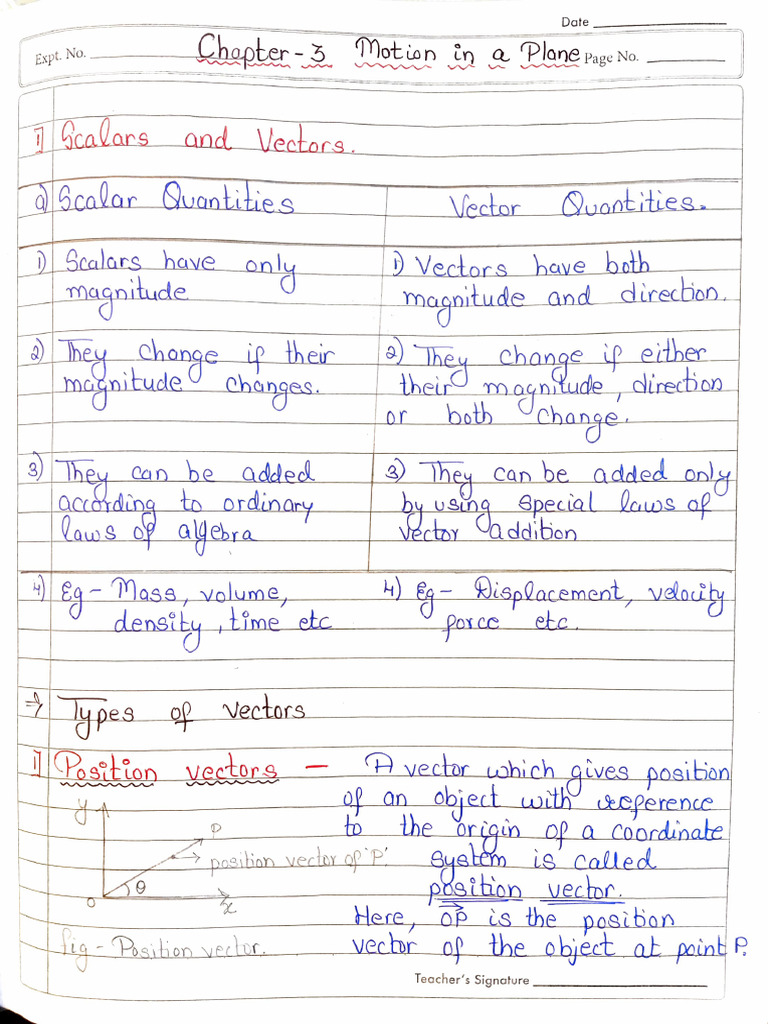 Date
Expt. No. Chapter-3 Motion in a Plane Page No.
1] Scalars and Vectors.
a) Scalar Quantities
Vector Quantities.
1) Scalars have only
magnitude
1) Vectors have both
magnitude and direction.
2) They change if their
magnitude changes.
2) They change if either
their magnitude, direction
or both change.
3) They can be added
according to ordinary
laws of algebra
3) They can be added only
by using special laws of
vector addition
4) Eg - Mass, volume,
density, time etc
4) Eg - Displacement, velocity
force etc.
⇒ Types of vectors
1] Position vectors — A vector which gives position
of an object with reference
to the origin of a coordinate
system is called
position vector.
Here, OP is the position
vector of the object at point P.
y
P
position vector of 'P'.
θ
O
x
fig - Position vector.
Teacher's Signature